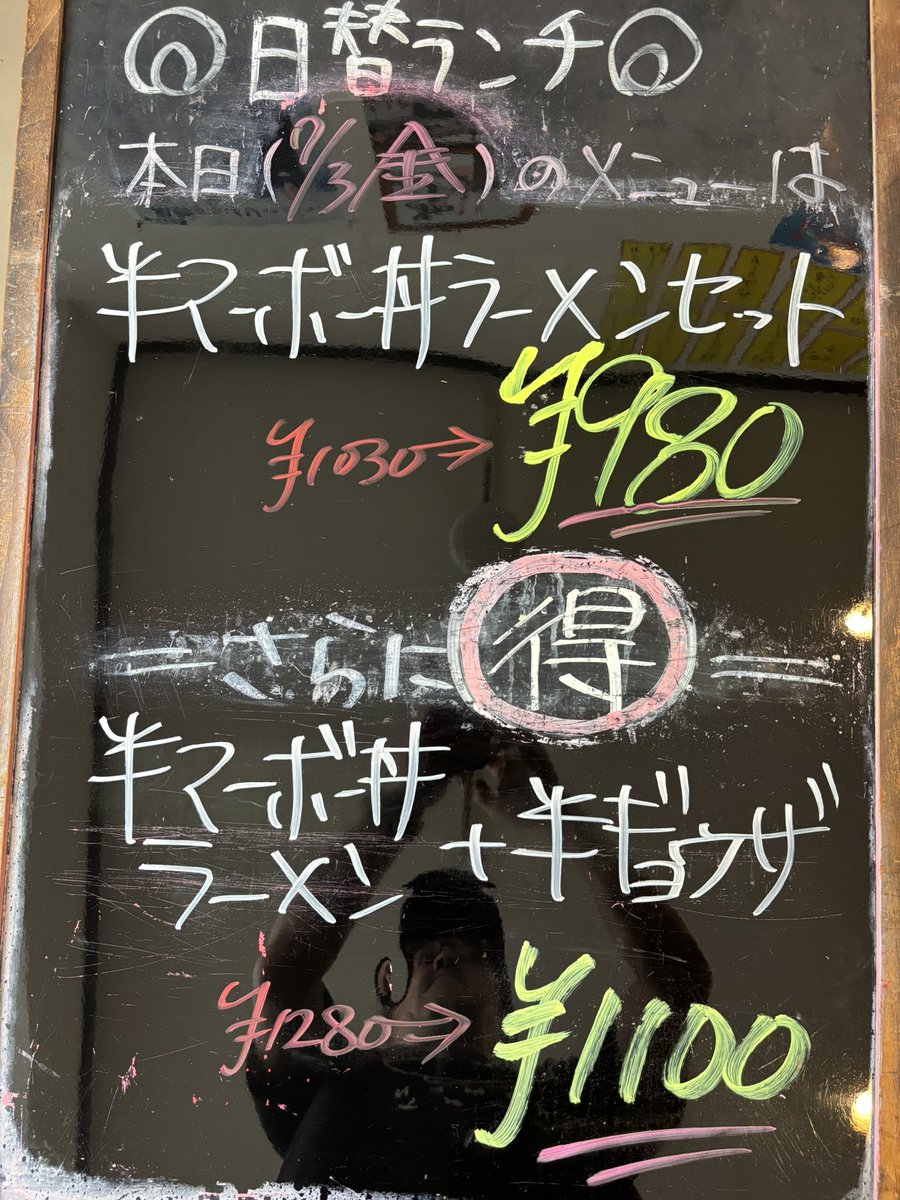 ◎日替ランチ◎
本日(7/3金)のメニューは
半マーボー丼ラーメンセット
¥1030→ ¥980
=さらに得=
半マーボー丼
ラーメン+半ギョウザ
¥1280→ ¥1100